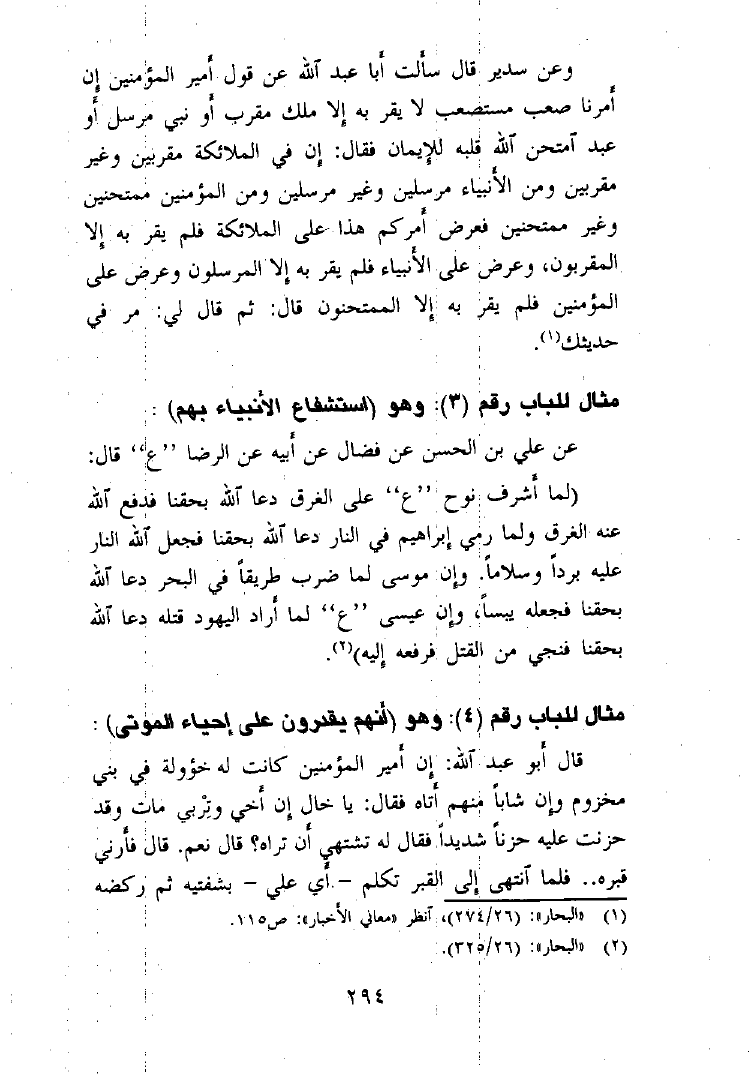 وعن سدير قال سأَلت أَبا عبد ٱلله عن قول أَمير المؤمنين إِن
أَمرنا صعب مستصعب لا يقر به إِلا ملك مقرب أَو نبي مرسل أَو
عبد ٱمتحن ٱلله قلبه للإِيمان فقال: إِن في الملائكة مقربين وغير
مقربين ومن الأَنبياء مرسلين وغير مرسلين ومن المؤمنين ممتحنين
وغير ممتحنين فعرض أَمركم هذا على الملائكة فلم يقر به إِلا
المقربون، وعرض على الأَنبياء فلم يقر به إِلا المرسلون وعرض على
المؤمنين فلم يقر به إِلا الممتحنون قال: ثم قال لي: مر في
حديثك(١).
مثال للباب رقم (٣): وهو (استشفاع الأنبياء بهم) :
عن علي بن الحسن عن فضال عن أَبيه عن الرضا ‘‘ع’’ قال:
(لما أَشرف نوح ‘‘ع’’ على الغرق دعا ٱلله بحقنا فدفع ٱلله
عنه الغرق ولما رمي إِبراهيم في النار دعا ٱلله بحقنا فجعل ٱلله النار
عليه برداً وسلاماً. وإِن موسى لما ضرب طريقاً في البحر دعا ٱلله
بحقنا فجعله يبساً، وإِن عيسى ‘‘ع’’ لما أَراد اليهود قتله دعا ٱلله
بحقنا فنجي من القتل فرفعه إِليه)(٢).
مثال للباب رقم (٤): وهو (أنهم يقدرون على إحياء الموتى) :
قال أَبو عبد ٱلله: إِن أَمير المؤمنين كانت له خؤولة في بني
مخزوم وإِن شاباً منهم أَتاه فقال: يا خال إِن أَخي وتِرْبي مات وقد
حزنت عليه حزناً شديداً فقال له تشتهي أَن تراه؟ قال نعم. قال فأَرني
قبره.. فلما ٱنتهى إِلى القبر تكلم – أَي علي – بشفتيه ثم ركضه
(١) «البحار»: (٢٧٤/٢٦)، ٱنظر «معاني الأَخبار»: ص١١٥.
(٢) «البحار»: (٣٢٥/٢٦).
٢٩٤